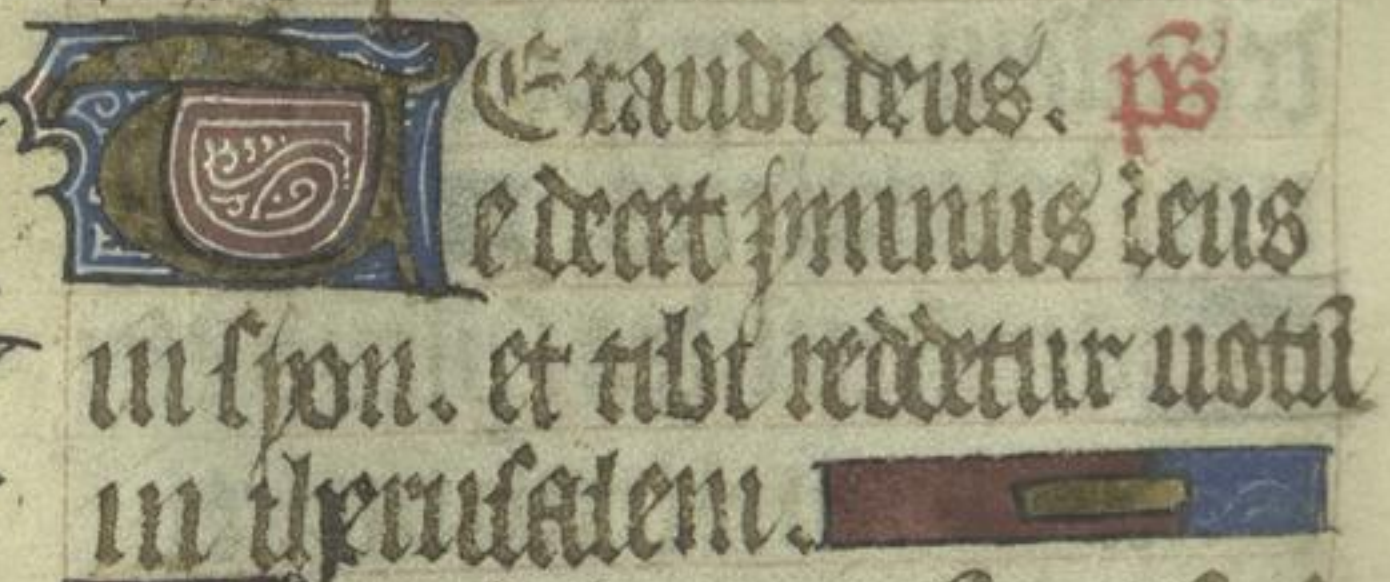 Exaudi deus. ps
Te decet ymnus deus
in syon. et tibi reddetur uotū
in iherusalem.